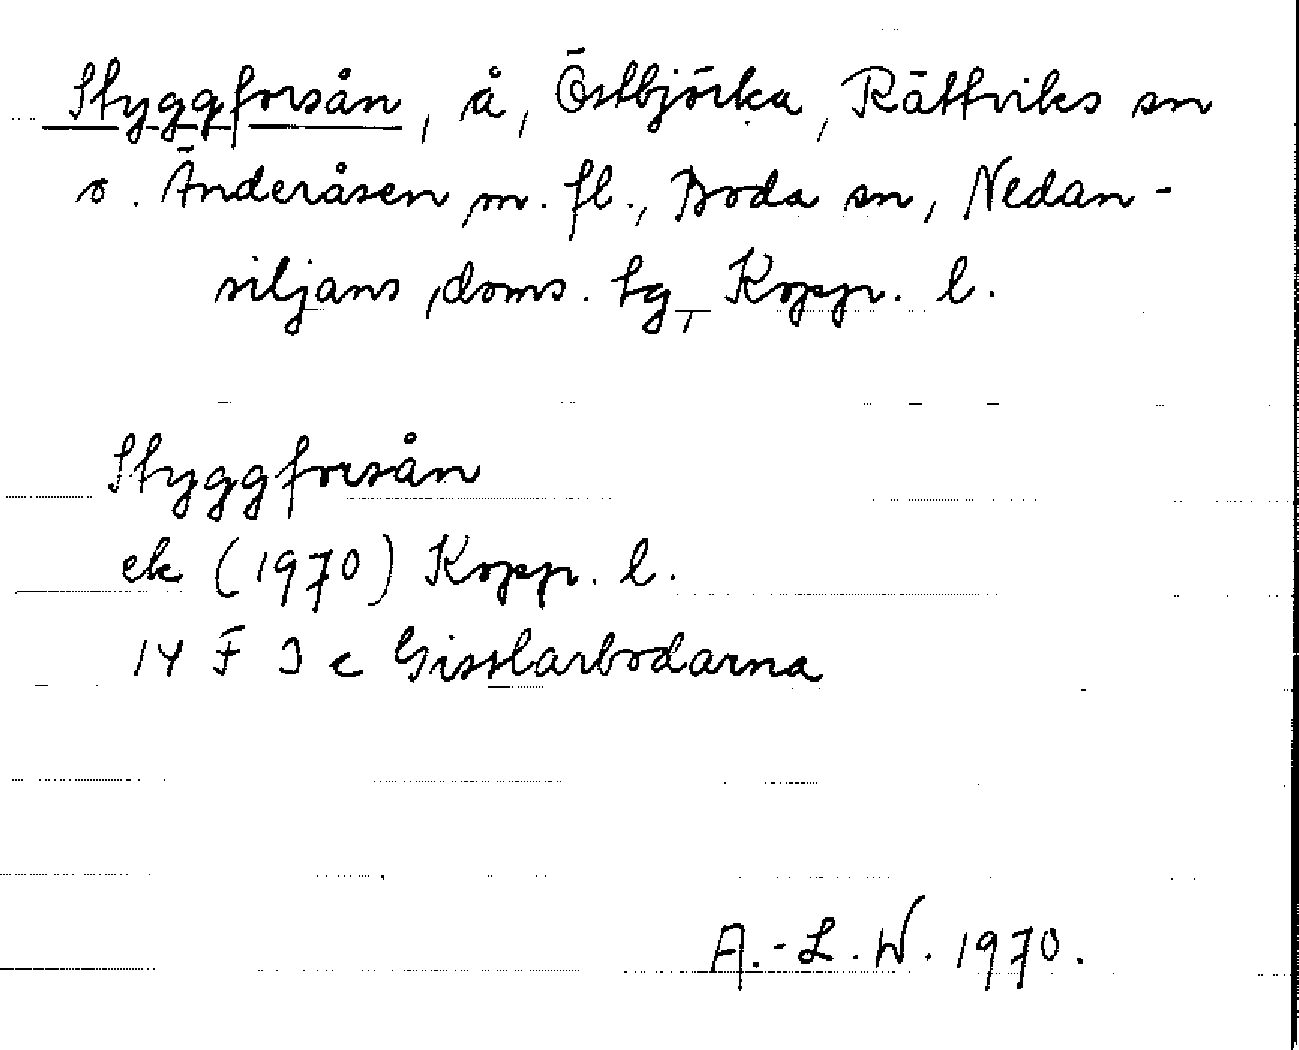 Styggforsån, å, Östbjörka, Rättviks sn
o. Änderåsen m. fl., Boda sn, Nedan-
siljans doms. tg, Kopp. l.
Styggforsån
ek (1970) Kopp. l.
14 F 3 c Gisslarbodarna
A.-L. W. 1970.